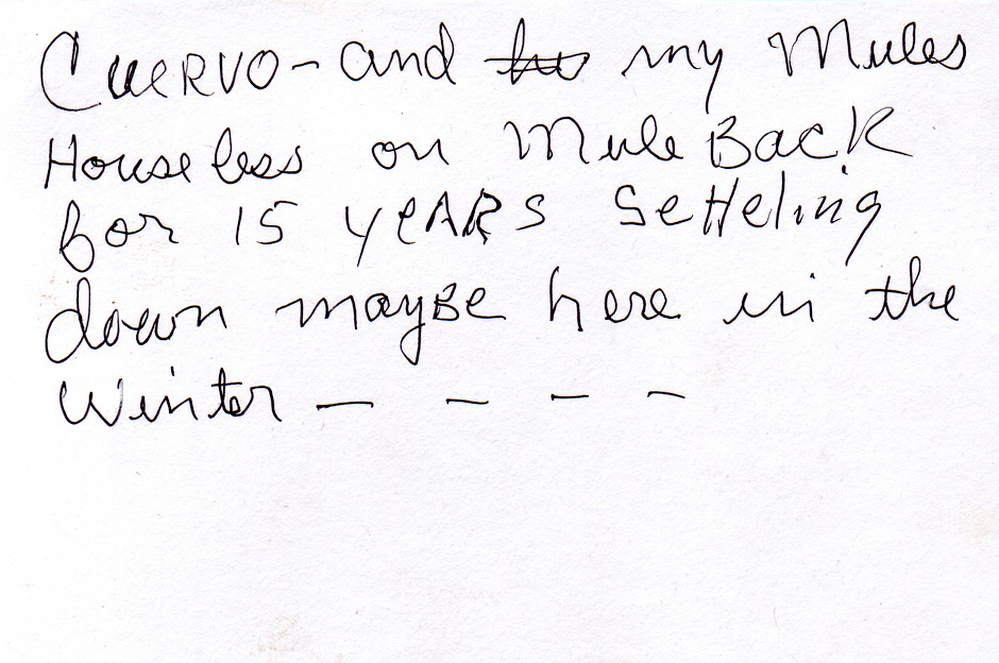 Cuervo - and his my Mules
Houseless on Mule Back
for 15 years Setteling
down maybe here in the
Winter — — — —